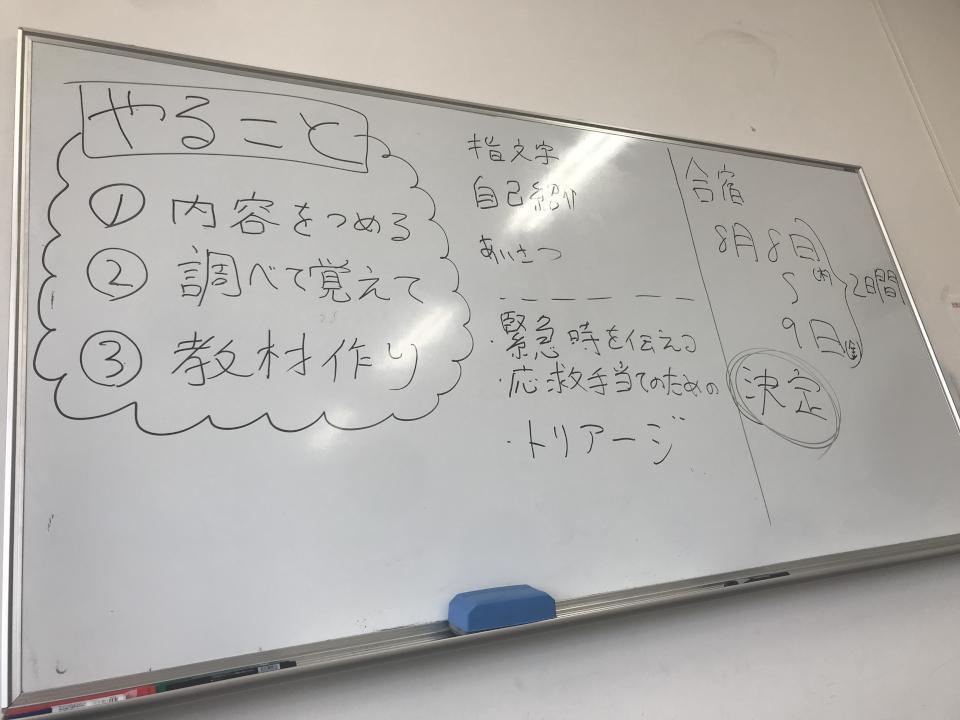 やること
① 内容をつめる
② 調べて覚えて
③ 教材作り
指文字
自己紹介
あいさつ
・緊急時を伝える
・応救手当てのための
・トリアージ
合宿
8月8日(木)
〜
9日(金)
2日間
決定